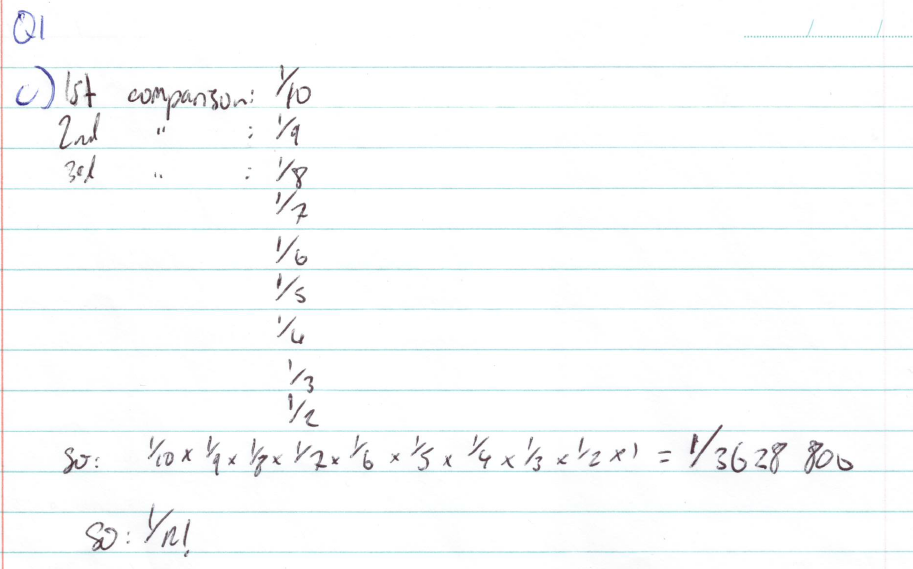 Q1
c) 1st comparison: 1/10
2nd " : 1/9
3rd " : 1/8
1/7
1/6
1/5
1/4
1/3
1/2
so: 1/10 x 1/9 x 1/8 x 1/7 x 1/6 x 1/5 x 1/4 x 1/3 x 1/2 x 1 = 1/3628 800
so: 1/n!